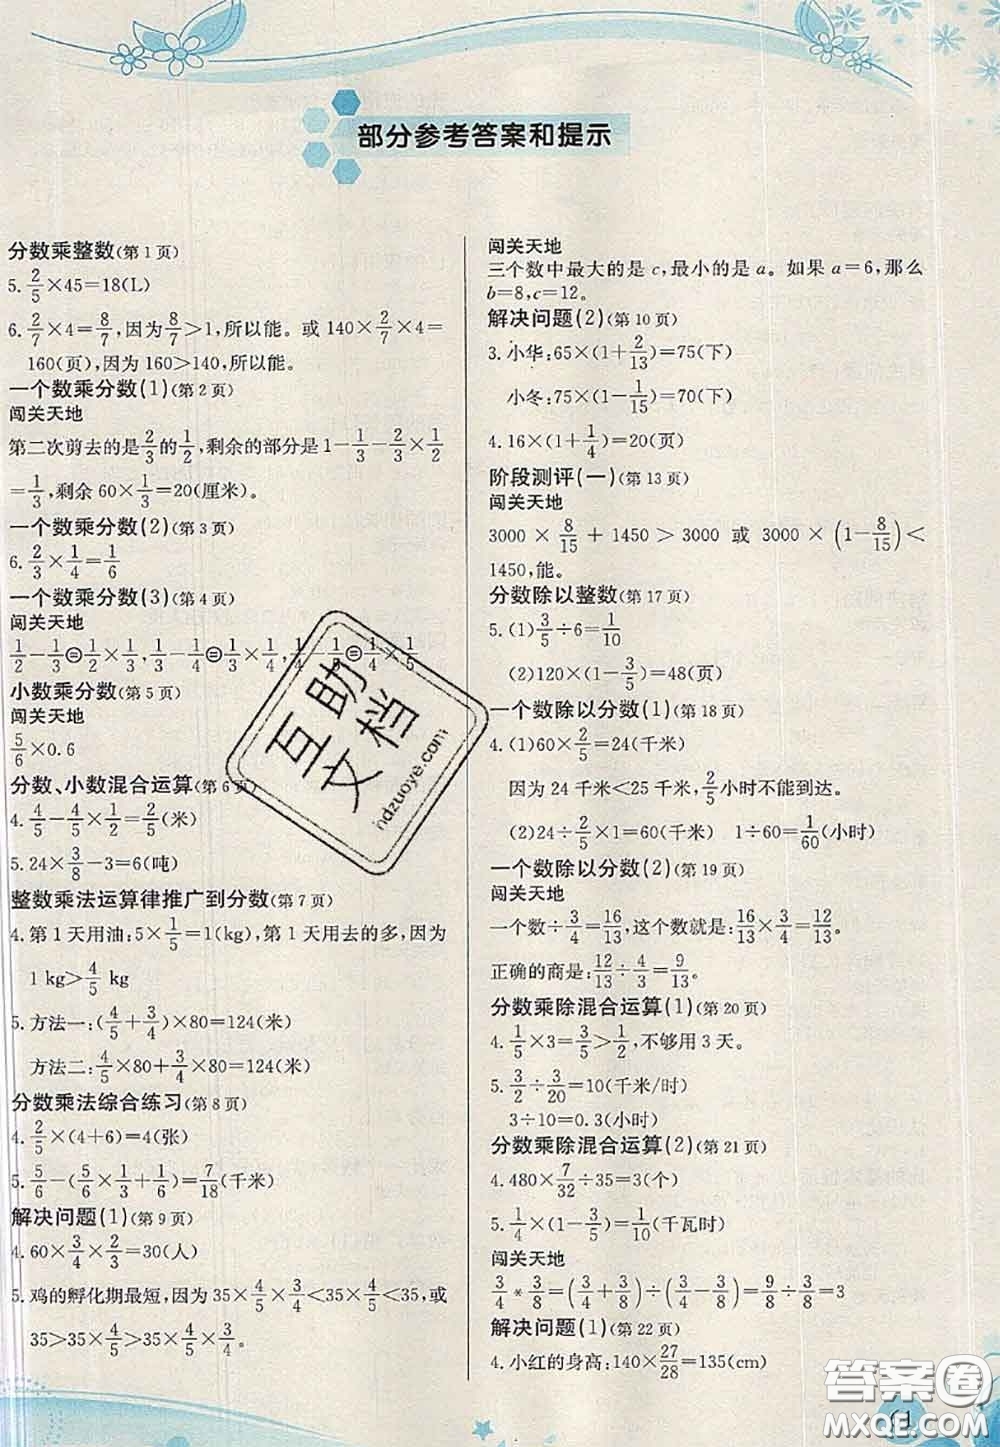 部分参考答案和提示
分数乘整数(第1页)
5. 2/5×45=18(L)
6. 2/7×4=8/7,因为8/7>1,所以能。或140×2/7×4=
160(页),因为160>140,所以能。
一个数乘分数(1)(第2页)
闯关天地
第二次剪去的是2/3的1/2,剩余的部分是1-1/3-2/3×1/2
=1/3,剩余60×1/3=20(厘米)。
一个数乘分数(2)(第3页)
6. 2/3×1/4=1/6
一个数乘分数(3)(第4页)
闯关天地
1/2-1/3=1/2×1/3,1/3-1/4=1/3×1/4,1/4-1/5=1/4×1/5
小数乘分数(第5页)
闯关天地
5/6×0.6
分数、小数混合运算(第6页)
4. 4/5-4/5×1/2=2/5(米)
5. 24×3/8-3=6(吨)
整数乘法运算律推广到分数(第7页)
4. 第1天用油:5×1/5=1(kg),第1天用去的多,因为
1 kg>4/5 kg
5. 方法一:(4/5+3/4)×80=124(米)
方法二:4/5×80+3/4×80=124(米)
分数乘法综合练习(第8页)
4. 2/5×(4+6)=4(张)
5. 5/6-(5/6×1/3+1/6)=7/18(千米)
解决问题(1)(第9页)
4. 60×3/4×2/3=30(人)
5. 鸡的孵化期最短,因为35×4/5×3/4<35×4/5<35,或
35>35×4/5>35×4/5×3/4。
闯关天地
三个数中最大的是c,最小的是a。如果a=6,那么
b=8,c=12。
解决问题(2)(第10页)
3. 小华:65×(1+2/13)=75(下)
小冬:75×(1-1/15)=70(下)
4. 16×(1+1/4)=20(页)
阶段测评(一)(第13页)
闯关天地
3000×8/15+1450>3000 或 3000×(1-8/15)<
1450,能。
分数除以整数(第17页)
5. (1)3/5÷6=1/10
(2)120×(1-3/5)=48(页)
一个数除以分数(1)(第18页)
4. (1)60×2/5=24(千米)
因为24千米<25千米,2/5小时不能到达。
(2)24÷2/5×1=60(千米) 1÷60=1/60(小时)
一个数除以分数(2)(第19页)
闯关天地
一个数÷3/4=16/13,这个数就是:16/13×3/4=12/13
正确的商是:12/13÷4/3=9/13。
分数乘除混合运算(1)(第20页)
4. 1/5×3=3/5>1/2,不够用3天。
5. 3/2÷3/20=10(千米/时)
3÷10=0.3(小时)
分数乘除混合运算(2)(第21页)
4. 480×7/32÷35=3(个)
5. 1/4×(1-3/5)=1/10(千瓦时)
闯关天地
3/4*3/8=(3/4+3/8)÷(3/4-3/8)=9/8÷3/8=3
解决问题(1)(第22页)
4. 小红的身高:140×27/28=135(cm)
互助文档
ndzuoye.com
答案圈
MXQE.COM